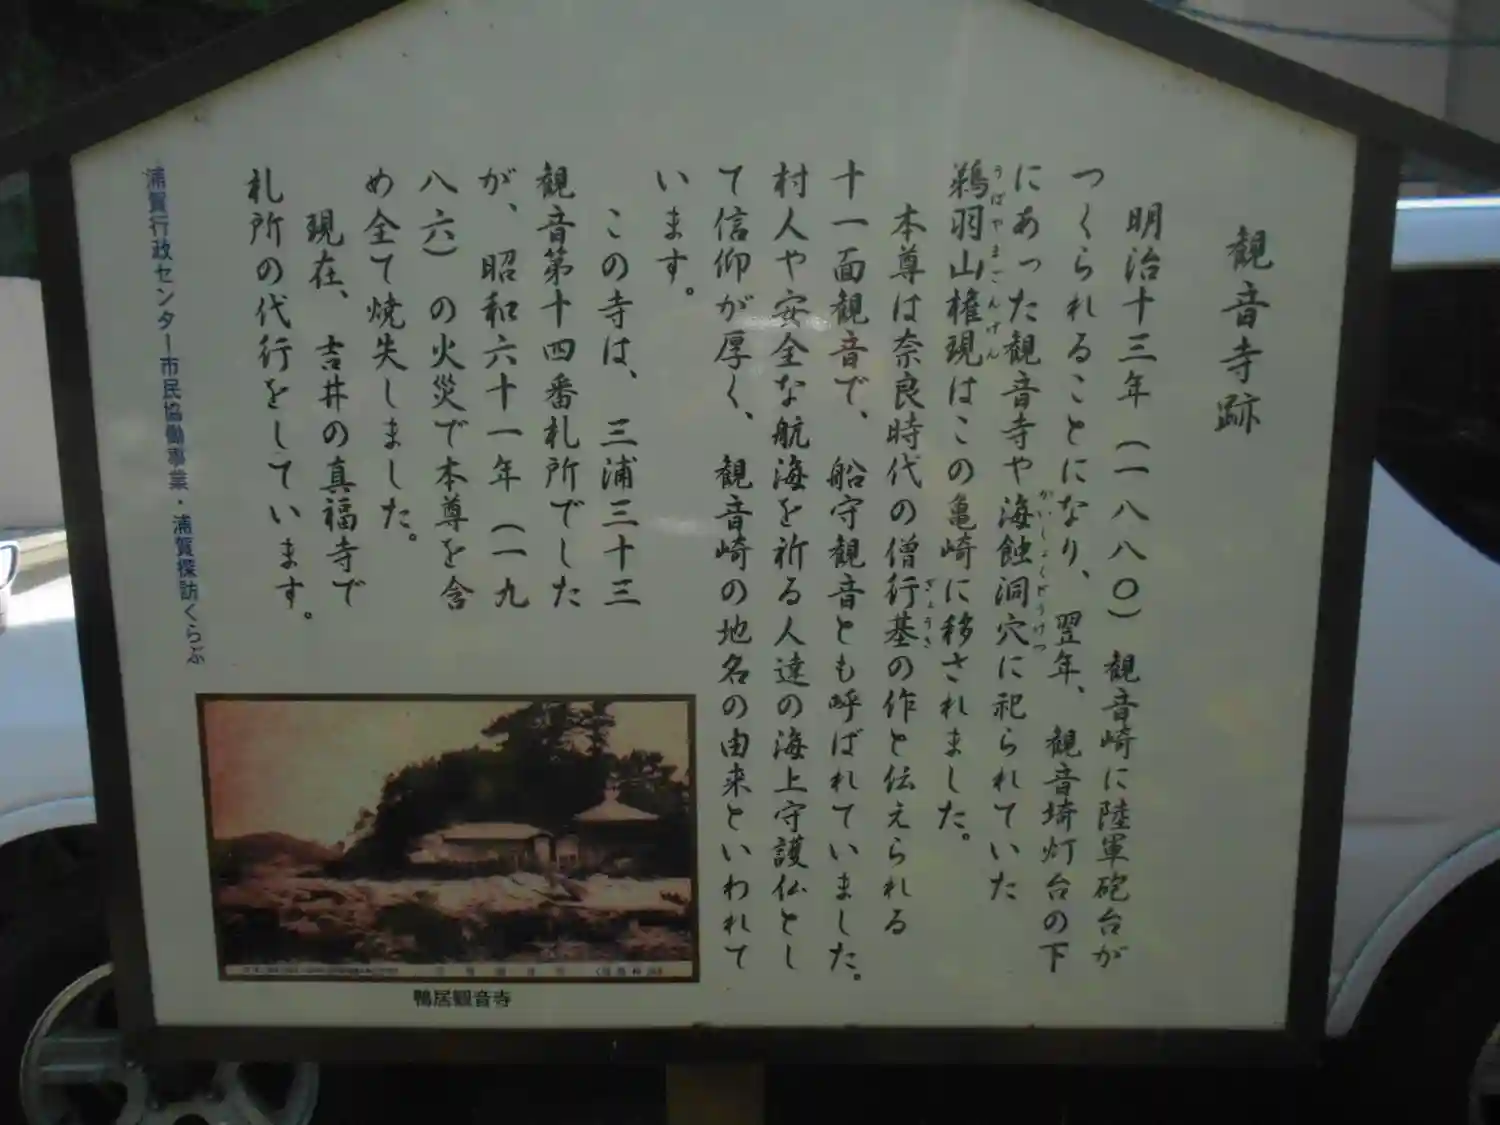 観音寺跡
明治十三年（一八八〇）観音崎に陸軍砲台が
つくられることになり、翌年、観音埼灯台の下
にあった観音寺や海蝕洞穴に祀られていた
かいしょくどうけつ
鵜羽山権現はこの亀崎に移されました。
うばやまごんげん
本尊は奈良時代の僧行基の作と伝えられる
ぎょうき
十一面観音で、船守観音とも呼ばれていました。
村人や安全な航海を祈る人達の海上守護仏とし
て信仰が厚く、観音崎の地名の由来といわれて
います。
この寺は、三浦三十三
観音第十四番札所でした
が、昭和六十一年（一九
八六）の火災で本尊を含
め全て焼失しました。
現在、吉井の真福寺で
札所の代行をしています。
浦賀行政センター市民協働事業・浦賀探訪くらぶ
鴨居観音寺